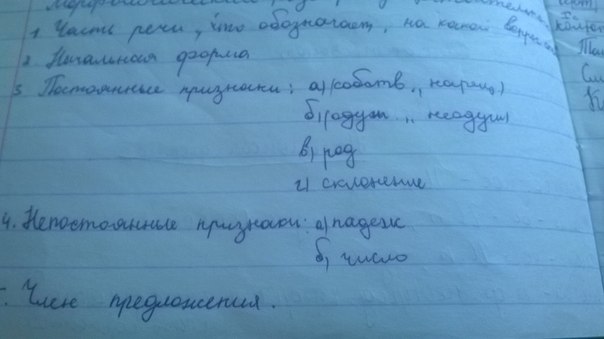 Морфологический
1 Часть речи, что обозначает, на какой вопрос
2. Начальная форма
3 Постоянные признаки: а) (собств., нариц.)
б) (одуш., неодуш)
в) род
г) склонение
4. Непостоянные признаки: а) падеж
б) число
Член предложения.